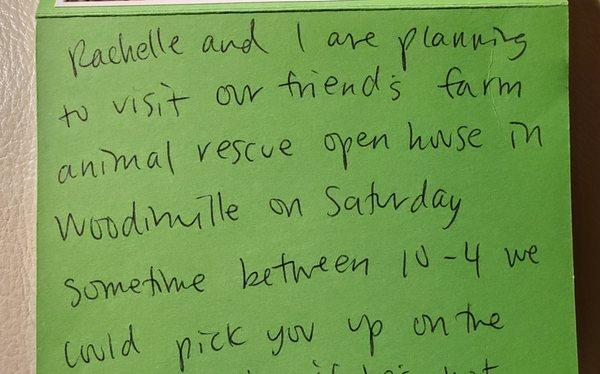 Rachelle and I are planning
to visit our friend's farm
animal rescue open house in
Woodinville on Saturday
sometime between 10-4 we
could pick you up on the